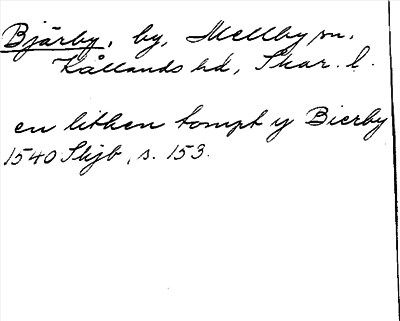 Bjärby, by, Mellby sn,
Kållands hd, Skar. l.
en lithen tompt y Bierby
1540 Skjb, s. 153.